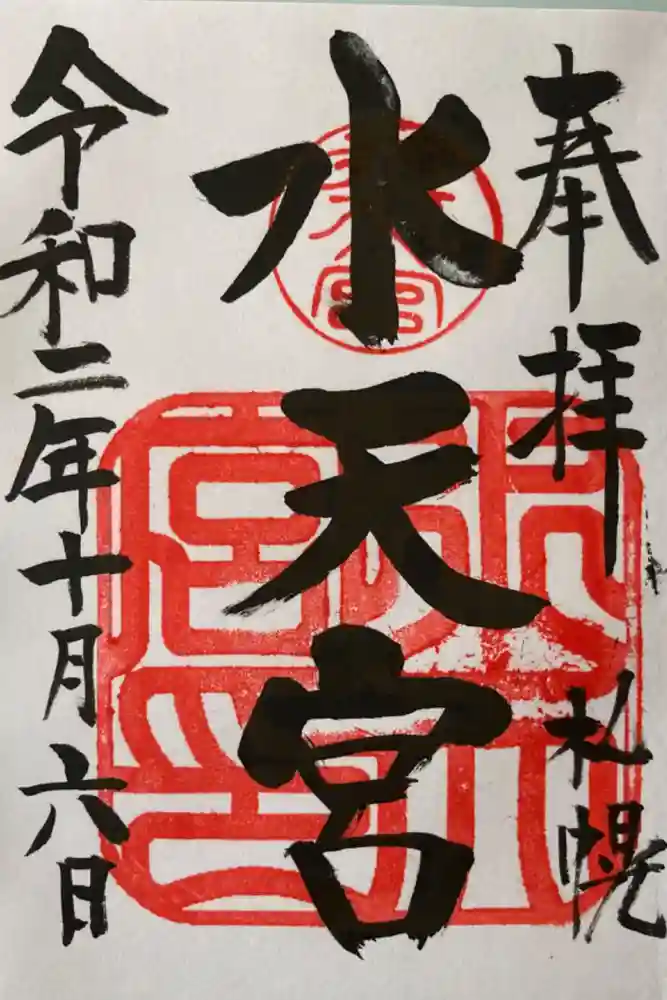 奉拝 札幌
水天宮
令和二年十月六日